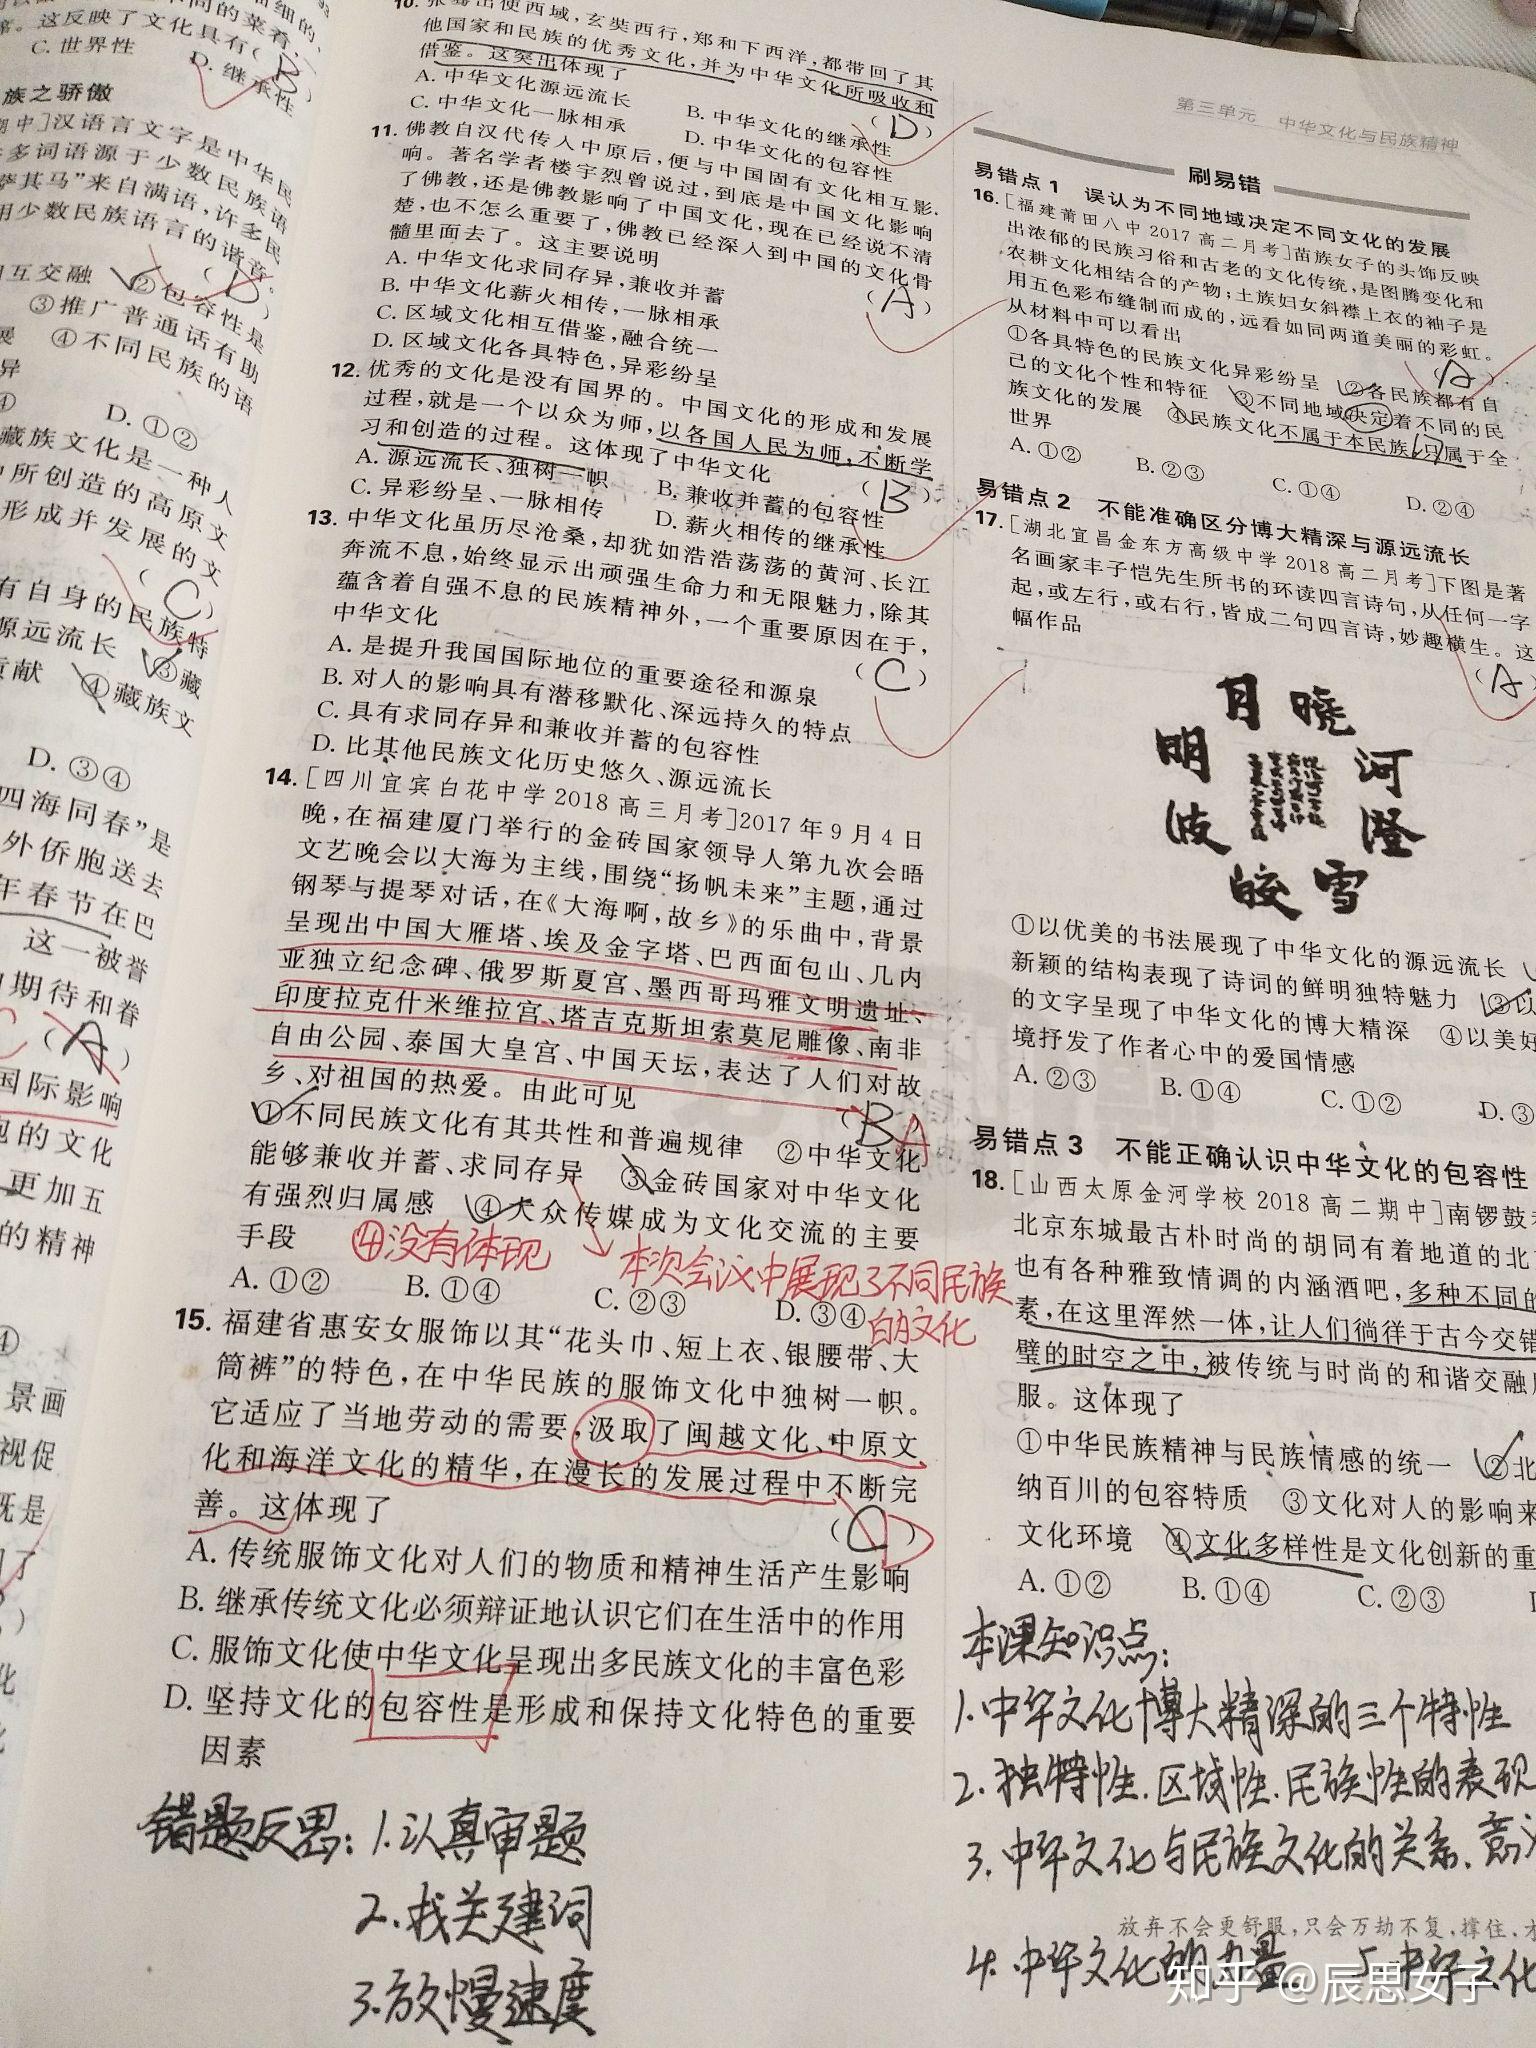 同的菜肴
细细的、
席。这反映了文化具有(B)
C. 世界性
D. 继承性
族之骄傲
期中]汉语言文字是中华民
多词语源于少数民族语
萨其马”来自满语,许多民
用少数民族语言的谐音。
(D)
相互交融 ②包容性是
③推广普通话有助
④不同民族的语
D. ①②
藏族文化是一种人
所创造的高原文
形成并发展的文
(C)
有自身的民族特
源远流长 ③藏
贡献 ④藏族文
D. ③④
四海同春”是
外侨胞送去
年春节在巴
这一被誉
期待和眷
(A)
国际影响
的文化
更加五
的精神
景画
视促
既是
10. 张骞出使西域,玄奘西行,郑和下西洋,都带回了其
他国家和民族的优秀文化,并为中华文化所吸收和
借鉴。这突出体现了
(D)
A. 中华文化源远流长
B. 中华文化的继承性
C. 中华文化一脉相承
D. 中华文化的包容性
11. 佛教自汉代传入中原后,便与中国固有文化相互影
响。著名学者楼宇烈曾说过,到底是中国文化影响
了佛教,还是佛教影响了中国文化,现在已经说不清
楚,也不怎么重要了,佛教已经深入到中国的文化骨
髓里面去了。这主要说明
(A)
A. 中华文化求同存异,兼收并蓄
B. 中华文化薪火相传,一脉相承
C. 区域文化相互借鉴,融合统一
D. 区域文化各具特色,异彩纷呈
12. 优秀的文化是没有国界的。中国文化的形成和发展
过程,就是一个以众为师,以各国人民为师,不断学
习和创造的过程。这体现了中华文化
(B)
A. 源远流长、独树一帜
B. 兼收并蓄的包容性
C. 异彩纷呈、一脉相传
D. 薪火相传的继承性
13. 中华文化虽历尽沧桑,却犹如浩浩荡荡的黄河、长江
奔流不息,始终显示出顽强生命力和无限魅力,除其
蕴含着自强不息的民族精神外,一个重要原因在于,
中华文化
(C)
A. 是提升我国国际地位的重要途径和源泉
B. 对人的影响具有潜移默化、深远持久的特点
C. 具有求同存异和兼收并蓄的包容性
D. 比其他民族文化历史悠久、源远流长
14. [四川宜宾白花中学2018高三月考]2017年9月4日
晚,在福建厦门举行的金砖国家领导人第九次会晤
文艺晚会以大海为主线,围绕“扬帆未来”主题,通过
钢琴与提琴对话,在《大海啊,故乡》的乐曲中,背景
呈现出中国大雁塔、埃及金字塔、巴西面包山、几内
亚独立纪念碑、俄罗斯夏宫、墨西哥玛雅文明遗址、
印度拉克什米维拉宫、塔吉克斯坦索莫尼雕像、南非
自由公园、泰国大皇宫、中国天坛,表达了人们对故
乡、对祖国的热爱。由此可见
(B) A
①不同民族文化有其共性和普遍规律 ②中华文化
能够兼收并蓄、求同存异 ③金砖国家对中华文化
有强烈归属感 ④大众传媒成为文化交流的主要
手段
④没有体现
本次会议中展现了不同民族
的文化
A. ①② B. ①④ C. ②③ D. ③④
15. 福建省惠安女服饰以其“花头巾、短上衣、银腰带、大
筒裤”的特色,在中华民族的服饰文化中独树一帜。
它适应了当地劳动的需要,汲取了闽越文化、中原文
化和海洋文化的精华,在漫长的发展过程中不断完
善。这体现了
(C) D
A. 传统服饰文化对人们的物质和精神生活产生影响
B. 继承传统文化必须辩证地认识它们在生活中的作用
C. 服饰文化使中华文化呈现出多民族文化的丰富色彩
D. 坚持文化的包容性是形成和保持文化特色的重要
因素
错题反思: 1.认真审题
2.找关键词
3.放慢速度
第三单元 中华文化与民族精神
刷易错
易错点1 误认为不同地域决定不同文化的发展
16. [福建莆田八中2017高二月考]苗族女子的头饰反映
出浓郁的民族习俗和古老的文化传统,是图腾变化和
农耕文化相结合的产物;土族妇女斜襟上衣的袖子是
用五色彩布缝制而成的,远看如同两道美丽的彩虹。
从材料中可以看出
(A)
①各具特色的民族文化异彩纷呈 ②各民族都有自
己的文化个性和特征 ③不同地域决定着不同的民
族文化的发展 ④民族文化不属于本民族,只属于全
世界
A. ①② B. ②③ C. ①④ D. ②④
易错点2 不能准确区分博大精深与源远流长
17. [湖北宜昌金东方高级中学2018高二月考]下图是著
名画家丰子恺先生所书的环读四言诗句,从任何一字
起,或左行,或右行,皆成二句四言诗,妙趣横生。这
幅作品
(A)
月 晓 河 澄 雪 皎 波 明
①以优美的书法展现了中华文化的源远流长
新颖的结构表现了诗词的鲜明独特魅力 ③以
的文字呈现了中华文化的博大精深 ④以美好
境抒发了作者心中的爱国情感
A. ②③ B. ①④ C. ①② D. ③
易错点3 不能正确认识中华文化的包容性
18. [山西太原金河学校2018高二期中]南锣鼓
北京东城最古朴时尚的胡同有着地道的北
也有各种雅致情调的内涵酒吧,多种不同的
素,在这里浑然一体,让人们徜徉于古今交错
璧的时空之中,被传统与时尚的和谐交融
服。这体现了
①中华民族精神与民族情感的统一 ②北
纳百川的包容特质 ③文化对人的影响来
文化环境 ④文化多样性是文化创新的重
A. ①② B. ①④ C. ②③
本课知识点:
1.中华文化博大精深的三个特性
2.独特性、区域性、民族性的表现
3.中华文化与民族文化的关系、意义
放弃不会更舒服,只会万劫不复,撑住,
4.中华文化的力量 5.中华文化
知乎 @辰思女子